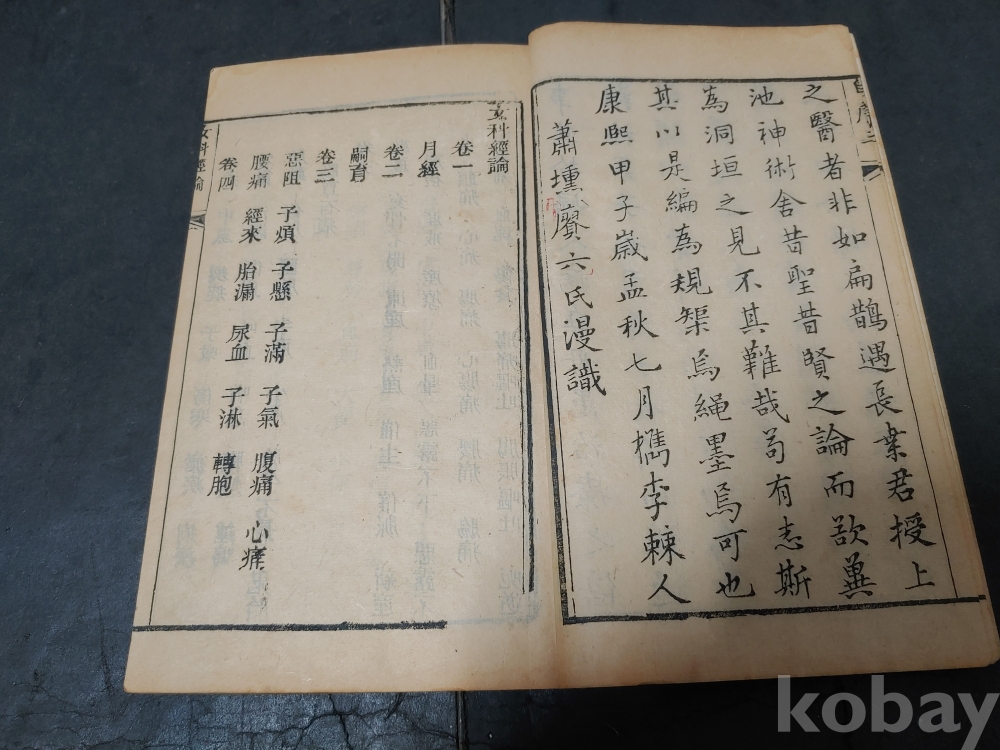 之醫者非如扁鵲遇長桒君授上
池神術舍昔聖昔賢之論而欲冀
為洞垣之見不其難哉苟有志斯
其以是編為規榘焉繩墨焉可也
康熙甲子歲孟秋七月檇李棘人
蕭壎賡六氏漫識
女科經論
卷一
月經
卷二
嗣育
卷三
惡阻 子煩 子懸 子滿 子氣 腹痛 心痛
腰痛 經來 胎漏 尿血 子淋 轉胞
卷四
女科經論
kobay